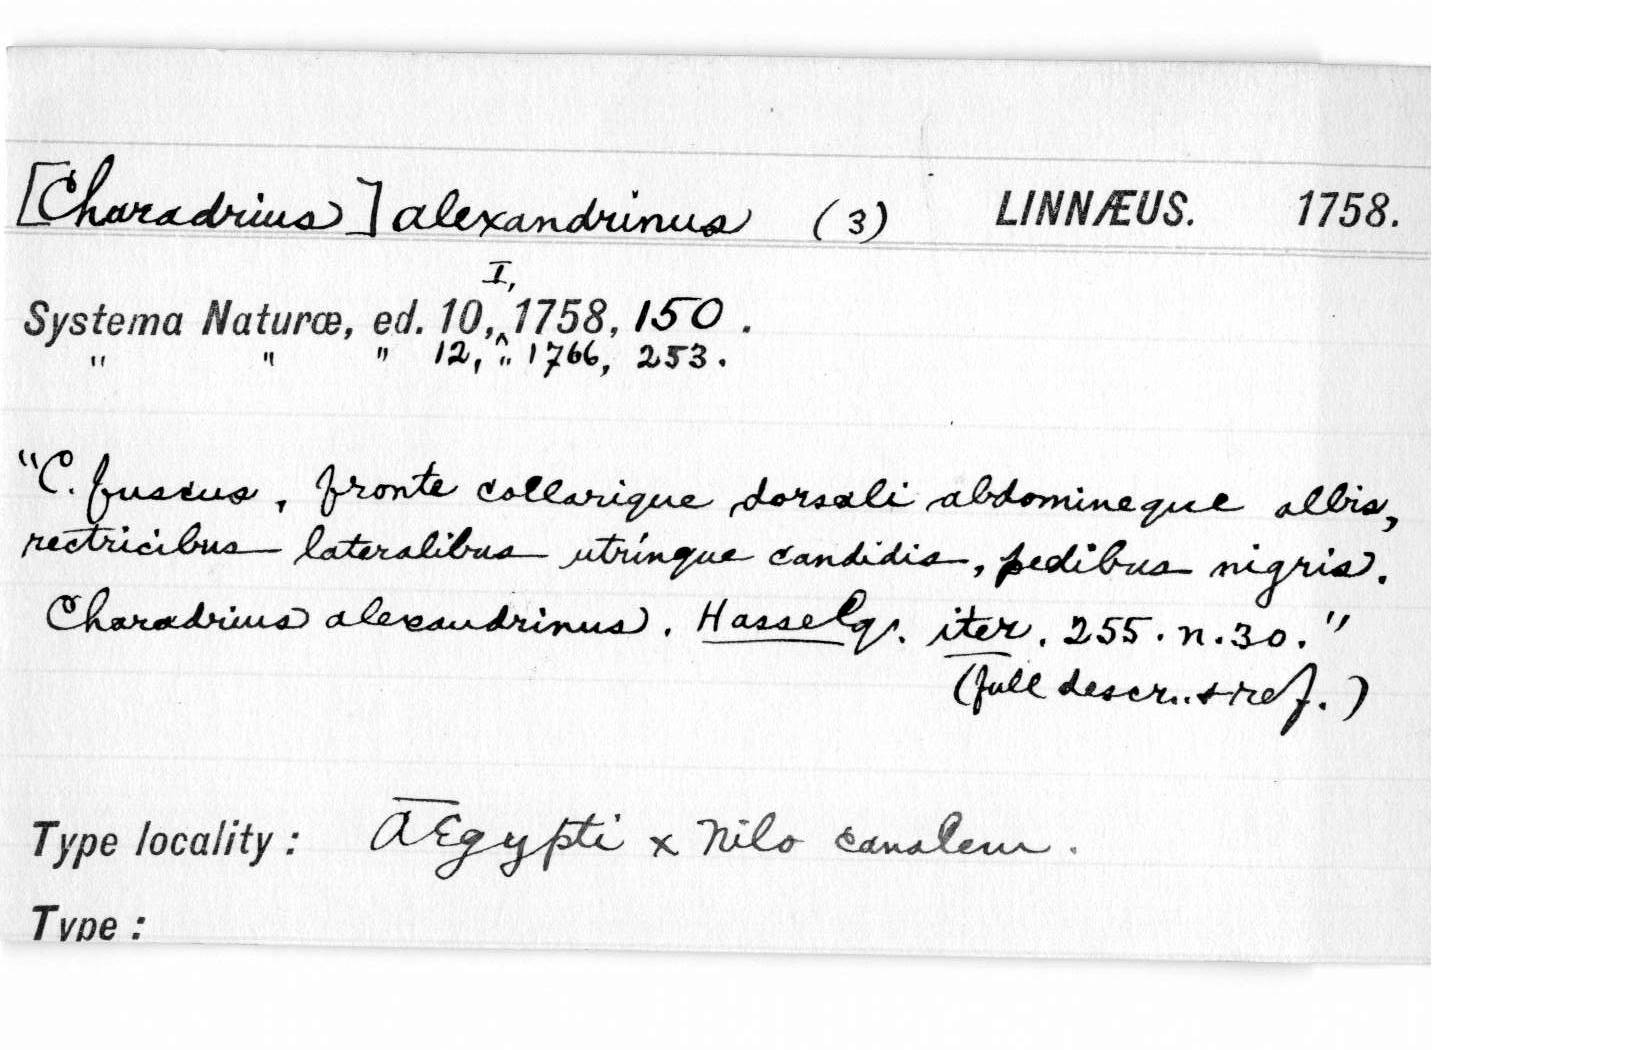 [Charadrius] alexandrinus (3) LINNÆUS. 1758.
I,
Systema Naturæ, ed. 10,^ 1758, 150.
" " " 12, " 1766, 253.
"C. fuscus, fronte collarique dorsali abdomineque albis,
rectricibus lateralibus utrinque candidis, pedibus nigris.
Charadrius alexandrinus. Hasselqv. iter. 255. n. 30."
(full descr. & ref.)
Type locality: Ægypti x Nilo canalem.
Type: